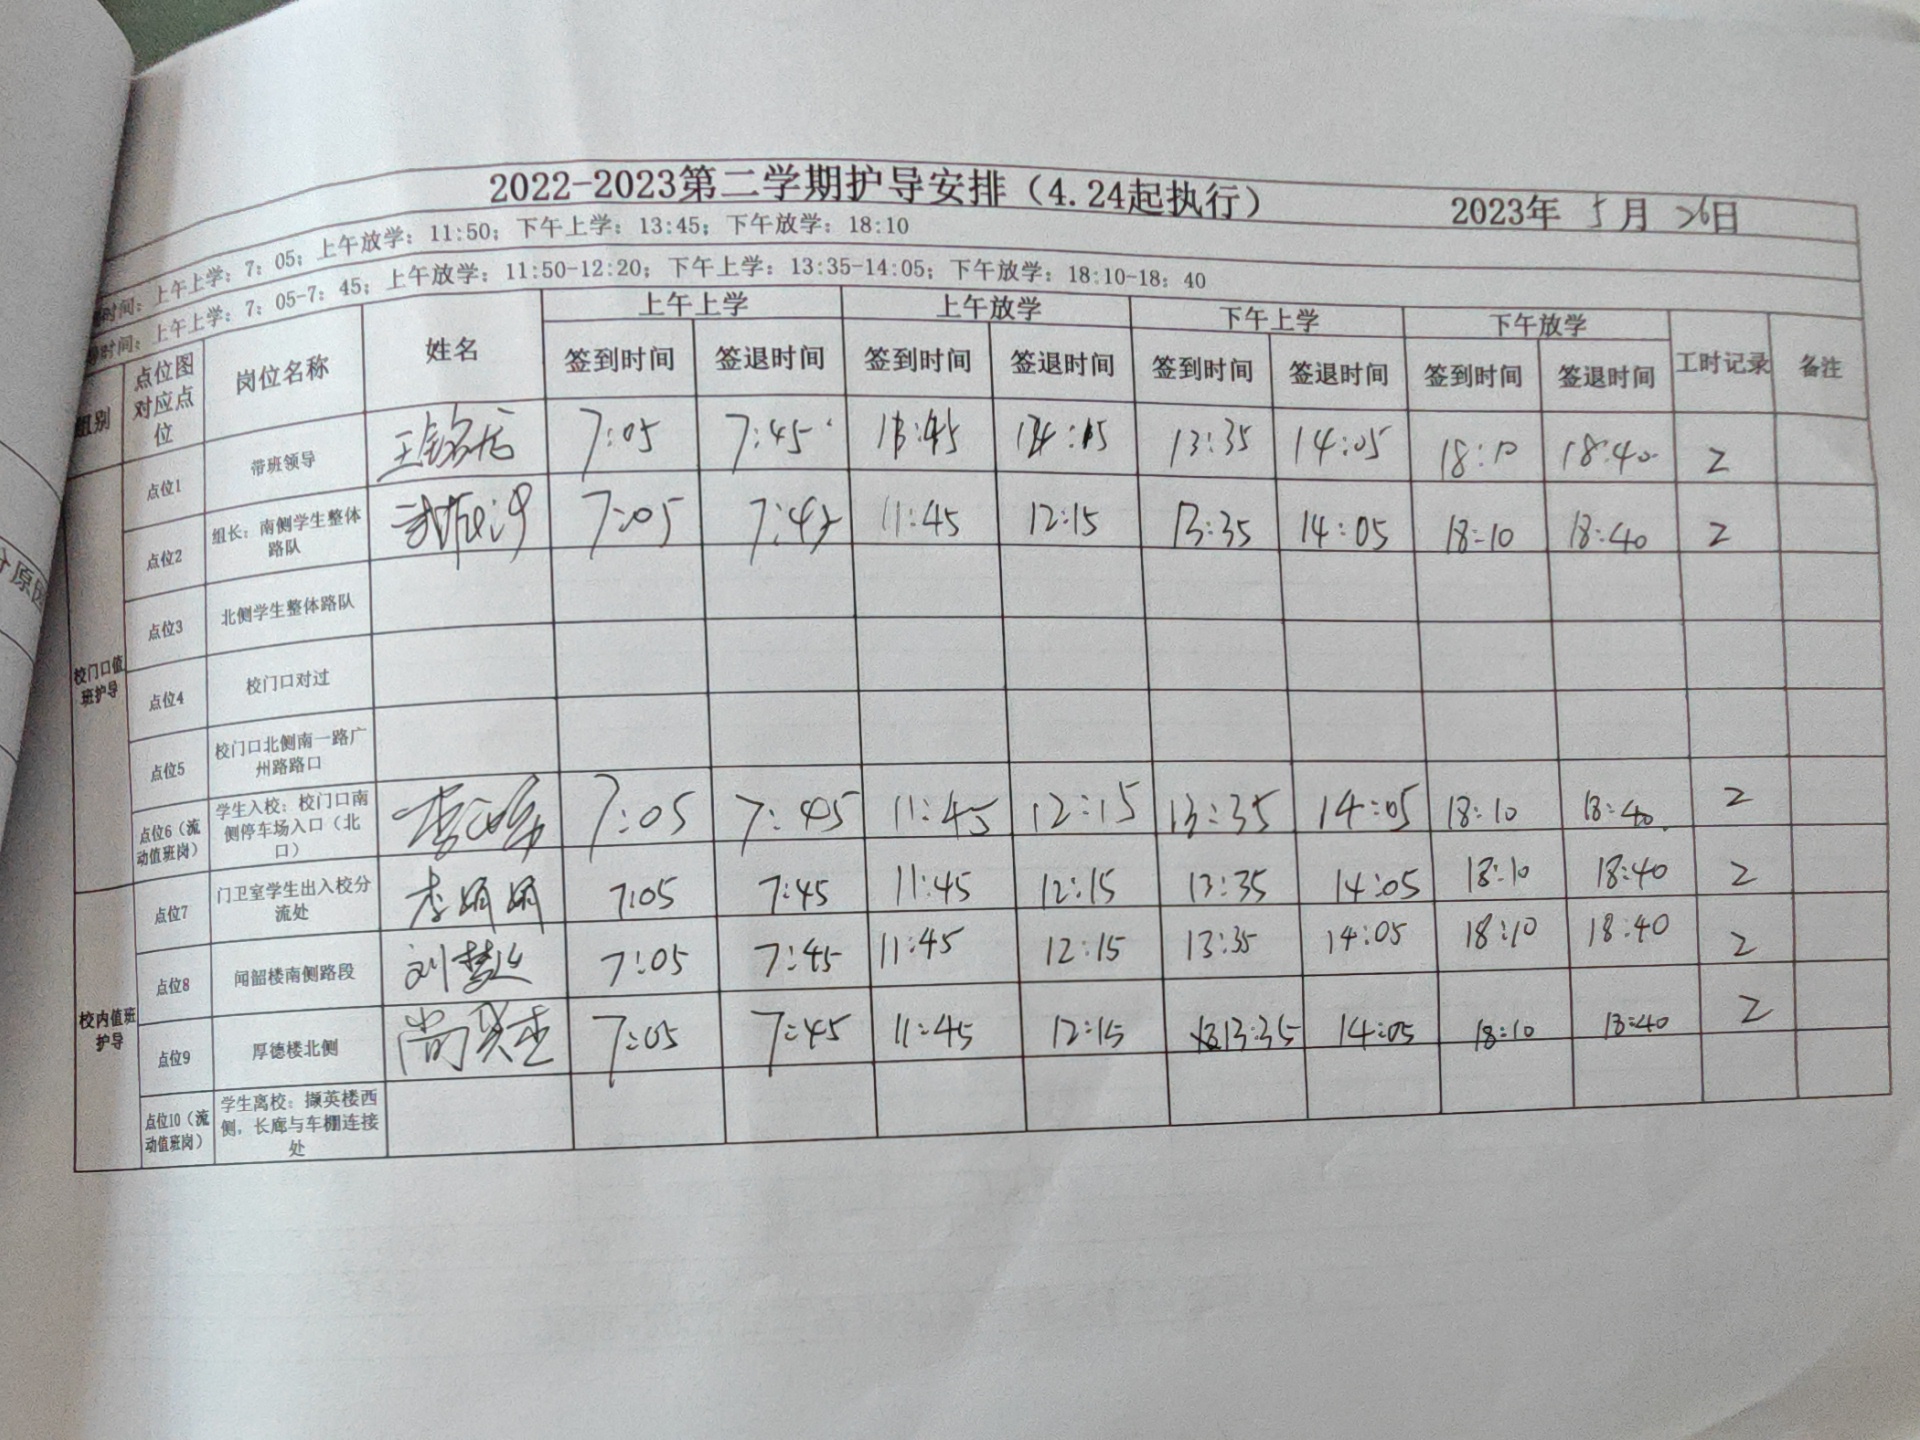 2022-2023第二学期护导安排（4.24起执行） 2023年 5月 26日
时间：上午上学：7：05；上午放学：11:50；下午上学：13:45；下午放学：18:10
时间：上午上学：7：05-7：45；上午放学：11:50-12:20；下午上学：13:35-14:05；下午放学：18:10-18：40
组别 点位图对应点位 岗位名称 姓名 上午上学 上午放学 下午上学 下午放学 工时记录 备注
签到时间 签退时间 签到时间 签退时间 签到时间 签退时间 签到时间 签退时间
校门口值班护导
点位1 带班领导 7:05 7:45 13:35 14:05 18:10 18:40 2
点位2 组长：南侧学生整体路队 7:05 7:45 11:45 12:15 13:35 14:05 18:10 18:40 2
点位3 北侧学生整体路队
点位4 校门口对过
点位5 校门口北侧南一路广州路路口
点位6（流动值班岗） 学生入校：校门口南侧停车场入口（北口） 7:05 7:45 11:45 12:15 13:35 14:05 18:10 18:40 2
校内值班护导
点位7 门卫室学生出入校分流处 李娟娟 7:05 7:45 11:45 12:15 13:35 14:05 18:10 18:40 2
点位8 闻韶楼南侧路段 7:05 7:45 11:45 12:15 13:35 14:05 18:10 18:40 2
点位9 厚德楼北侧 7:05 7:45 11:45 12:15 13:35 14:05 18:10 18:40 2
点位10（流动值班岗） 学生离校：撷英楼西侧，长廊与车棚连接处
原因